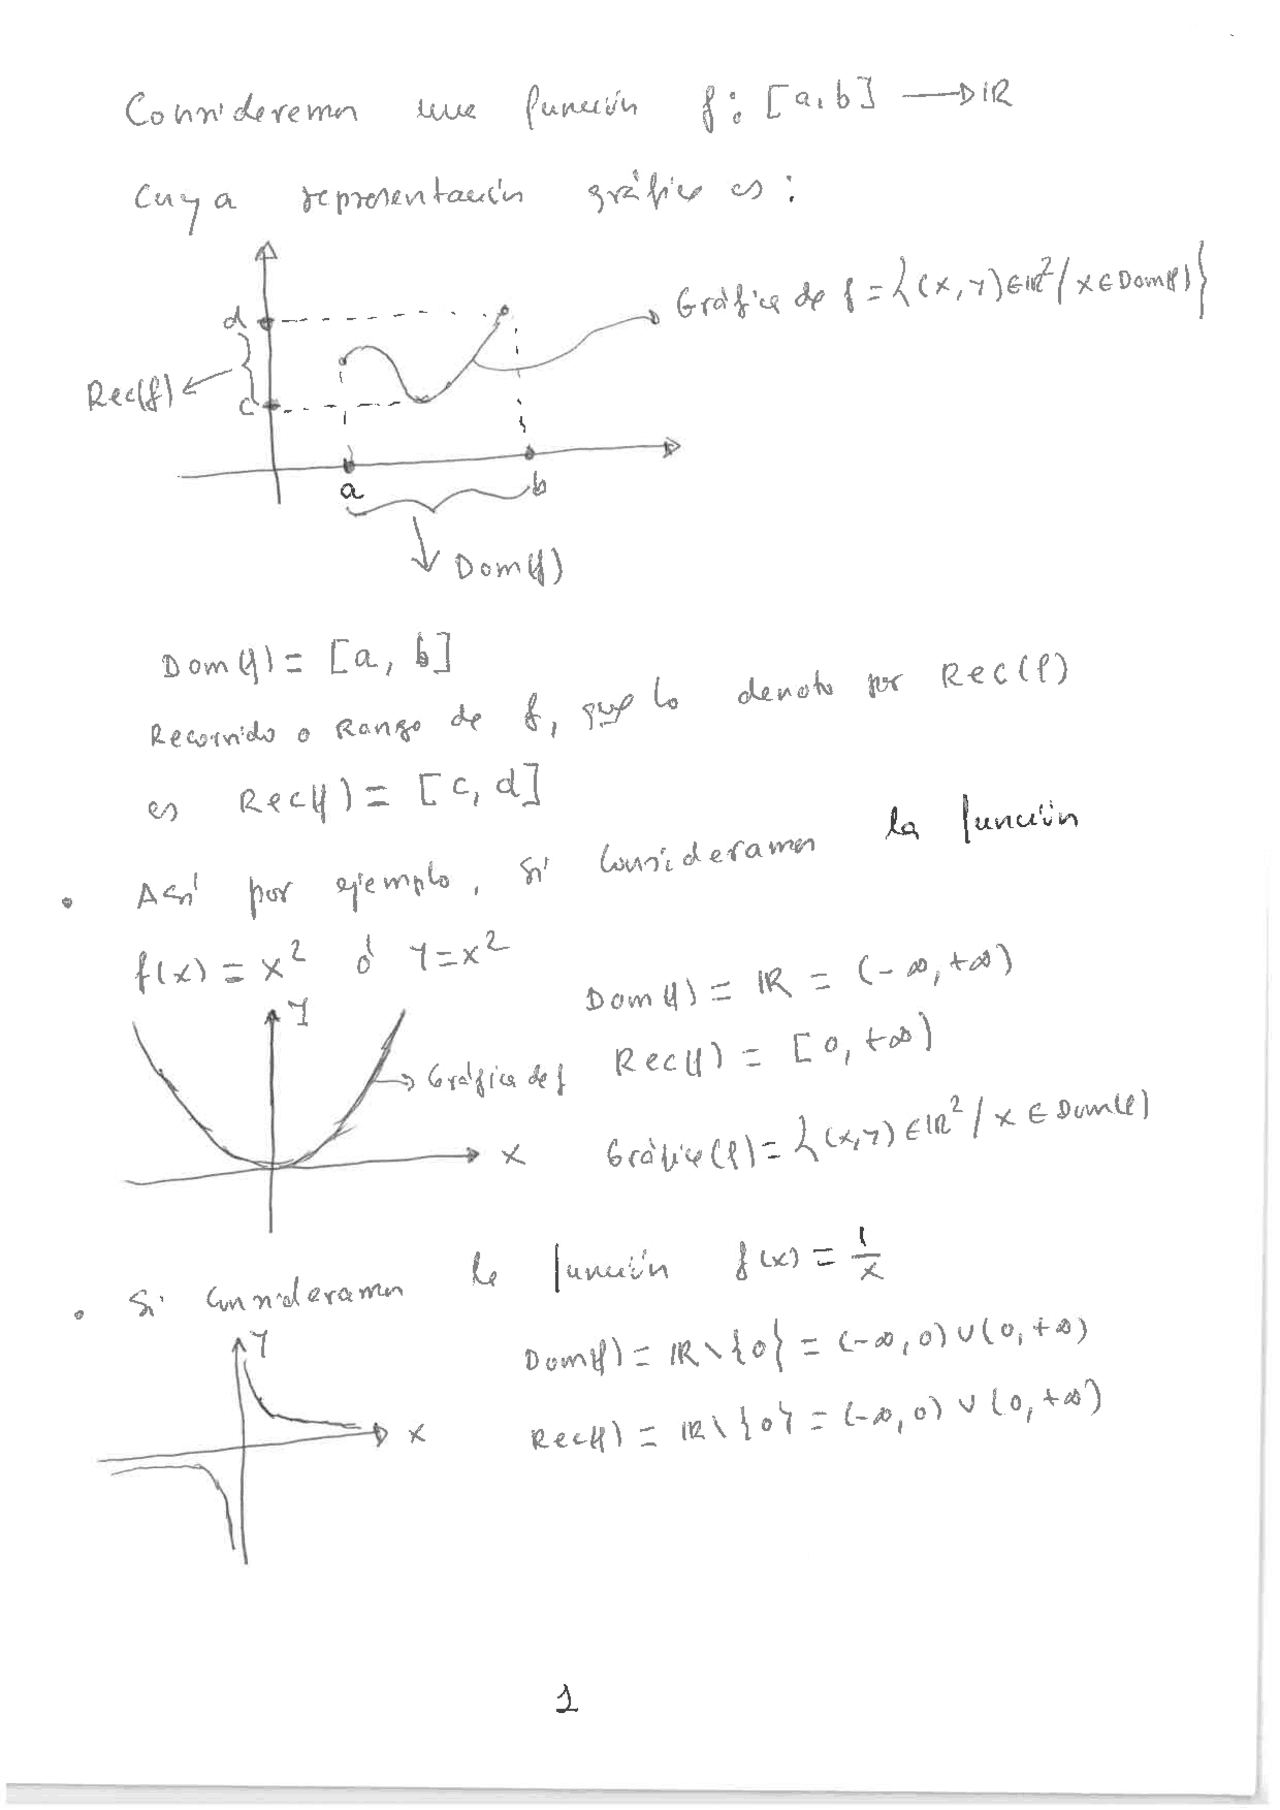 Consideremos una función f: [a,b] → ℝ
cuya representación gráfica es:
Gráfica de f = {(x,y)∈ℝ²/ x∈Dom(f)}
d
Rec(f)
c
a b
Dom(f)
Dom(f) = [a, b]
Recorrido o Rango de f, que lo denoto por Rec(f)
es Rec(f) = [c, d]
• Así por ejemplo, si consideramos la función
f(x) = x² ó y = x²
Dom(f) = ℝ = (-∞, +∞)
Y
Gráfica de f
Rec(f) = [0, +∞)
X
Gráfica(f) = {(x,y) ∈ ℝ² / x ∈ Dom(f)
• Si consideramos la función f(x) = 1/x
Y
Dom(f) = ℝ \ {0} = (-∞, 0) ∪ (0, +∞)
X
Rec(f) = ℝ \ {0} = (-∞, 0) ∪ (0, +∞)
1